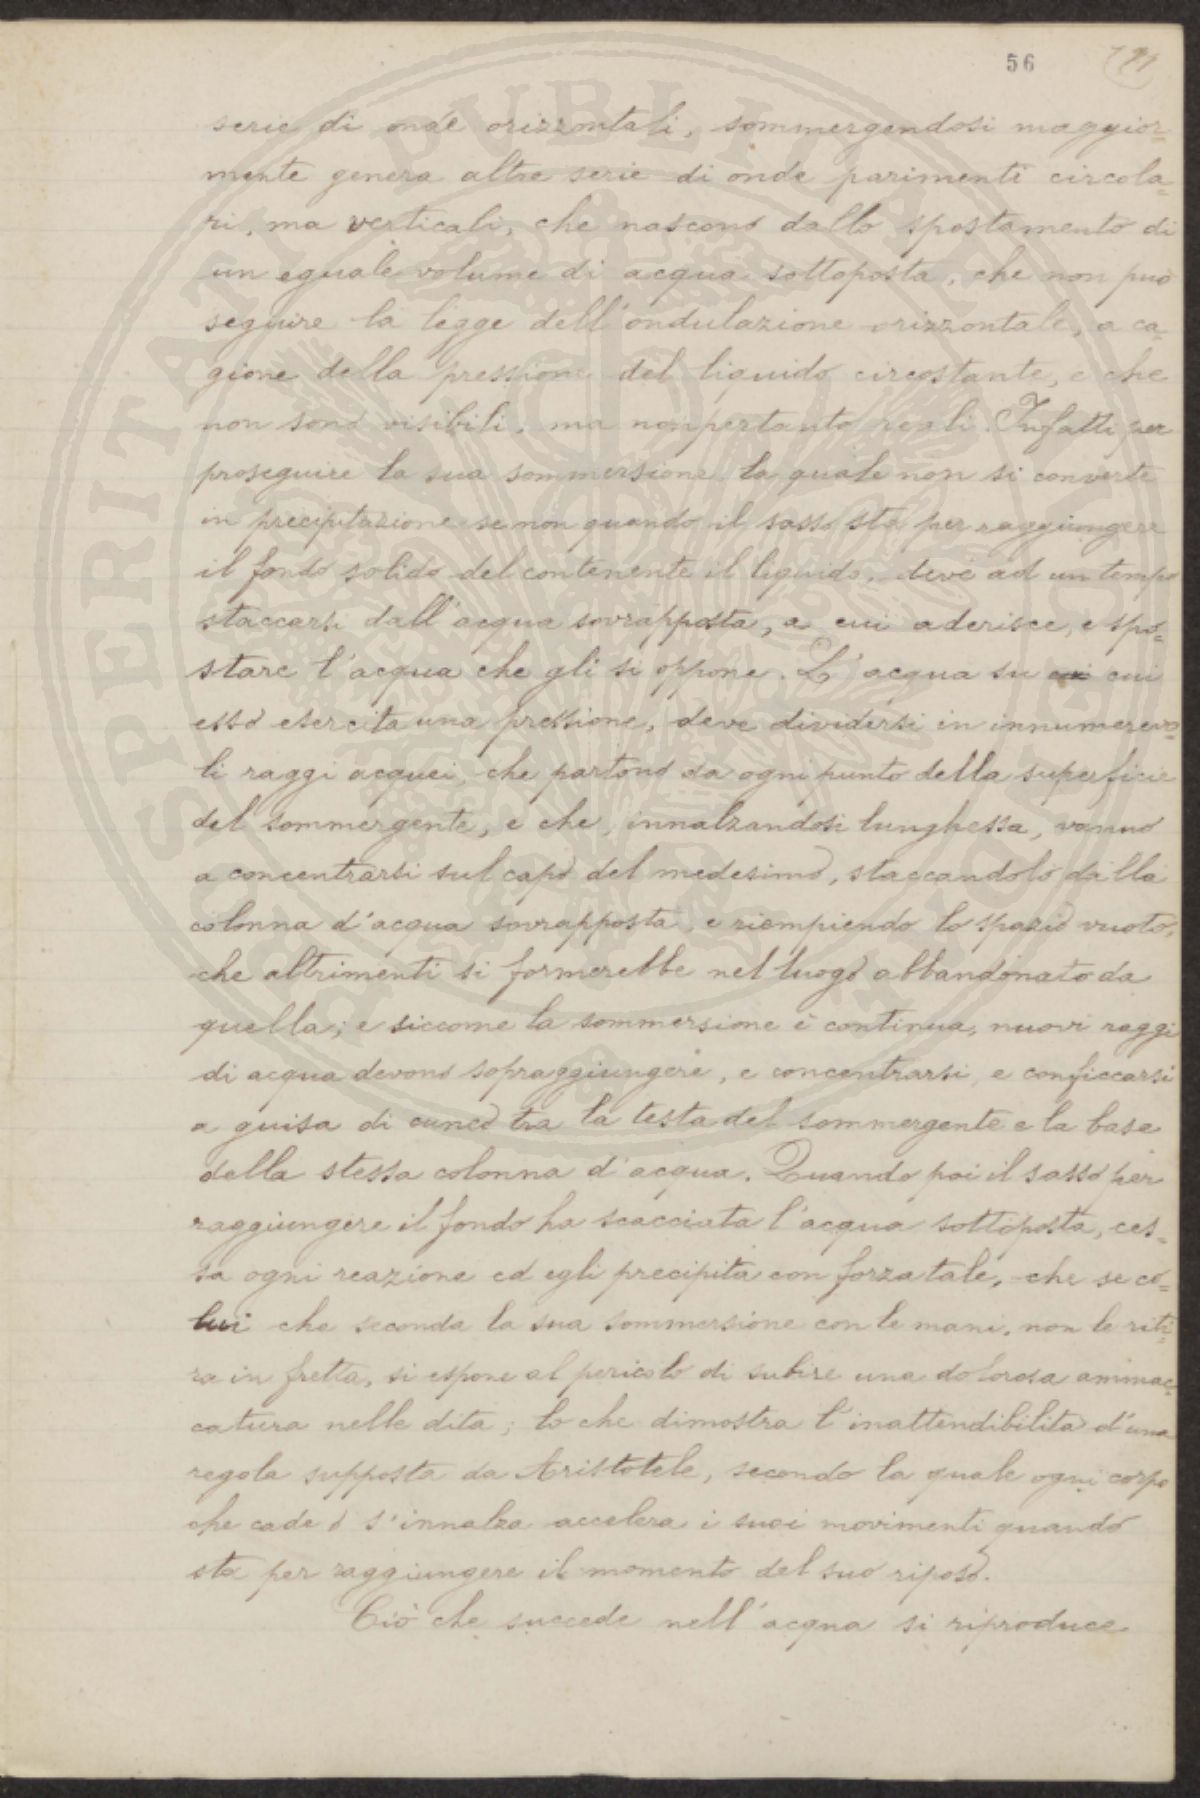 56
serie di onde orizzontali, sommergendosi maggior=
mente genera altre serie di onde parimenti circola=
ri, ma verticali, che nascono dallo spostamento di
un eguale volume di acqua sottoposta, che non può
seguire la legge dell'ondulazione orizzontale, a ca=
gione della pressione del liquido circostante, e che
non sono visibili, ma nonpertanto reali. Infatti per
proseguire la sua sommersione la quale non si converte
in precipitazione se non quando il sasso sta per raggiungere
il fondo solido del contenente il liquido, deve ad un tempo
staccarsi dall'acqua sovrapposta, a cui aderisce, e spo=
stare l'acqua che gli si oppone. L'acqua su cui
esso esercita una pressione, deve dividersi in innumerevo=
li raggi acquei, che partono da ogni punto della superficie
del sommergente, e che, innalzandosi lunghessa, vanno
a concentrarsi sul capo del medesimo, staccandolo dalla
colonna d'acqua sovrapposta, e riempiendo lo spazio vuoto,
che altrimenti si formerebbe nel luogo abbandonato da
quella; e siccome la sommersione è continua, nuovi raggi
di acqua devono sopraggiungere, e concentrarsi, e conficcarsi
a guisa di cuneo tra la testa del sommergente e la base
della stessa colonna d'acqua. Quando poi il sasso per
raggiungere il fondo ha scacciata l'acqua sottoposta, ces=
sa ogni reazione ed egli precipita con forza tale, che se co=
lui che seconda la sua sommersione con le mani, non le riti=
ra in fretta, si espone al pericolo di subire una dolorosa ammac=
catura nelle dita; lo che dimostra l'inattendibilità d'una
regola supposta da Aristotele, secondo la quale ogni corpo
che cade o s'innalza accelera i suoi movimenti quando
sta per raggiungere il momento del suo riposo.
Ciò che succede nell'acqua si riproduce